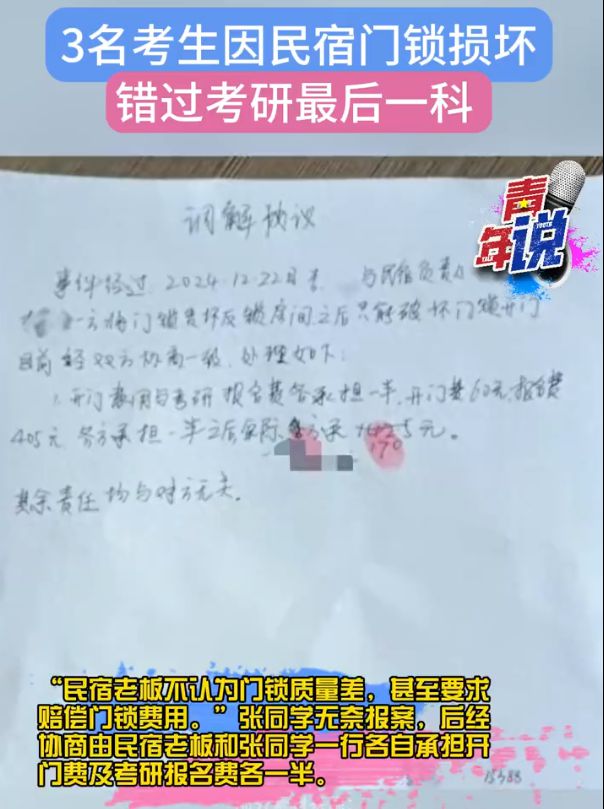 3名考生因民宿门锁损坏
错过考研最后一科
青年说
YOUTH
调解协议
事件经过 2024.12.22日 与民宿负责人
一方将门锁损坏反锁房间之后只能破坏门锁开门
目前经双方协商一致,处理如下:
1.开门费用与考研报名费各承担一半,开门费60元,报名费
405元,各方承担一半之后实际 方承 元。
170
其余责任均与对方无关。
“民宿老板不认为门锁质量差,甚至要求
赔偿门锁费用。”张同学无奈报案,后经
协商由民宿老板和张同学一行各自承担开
门费及考研报名费各一半。